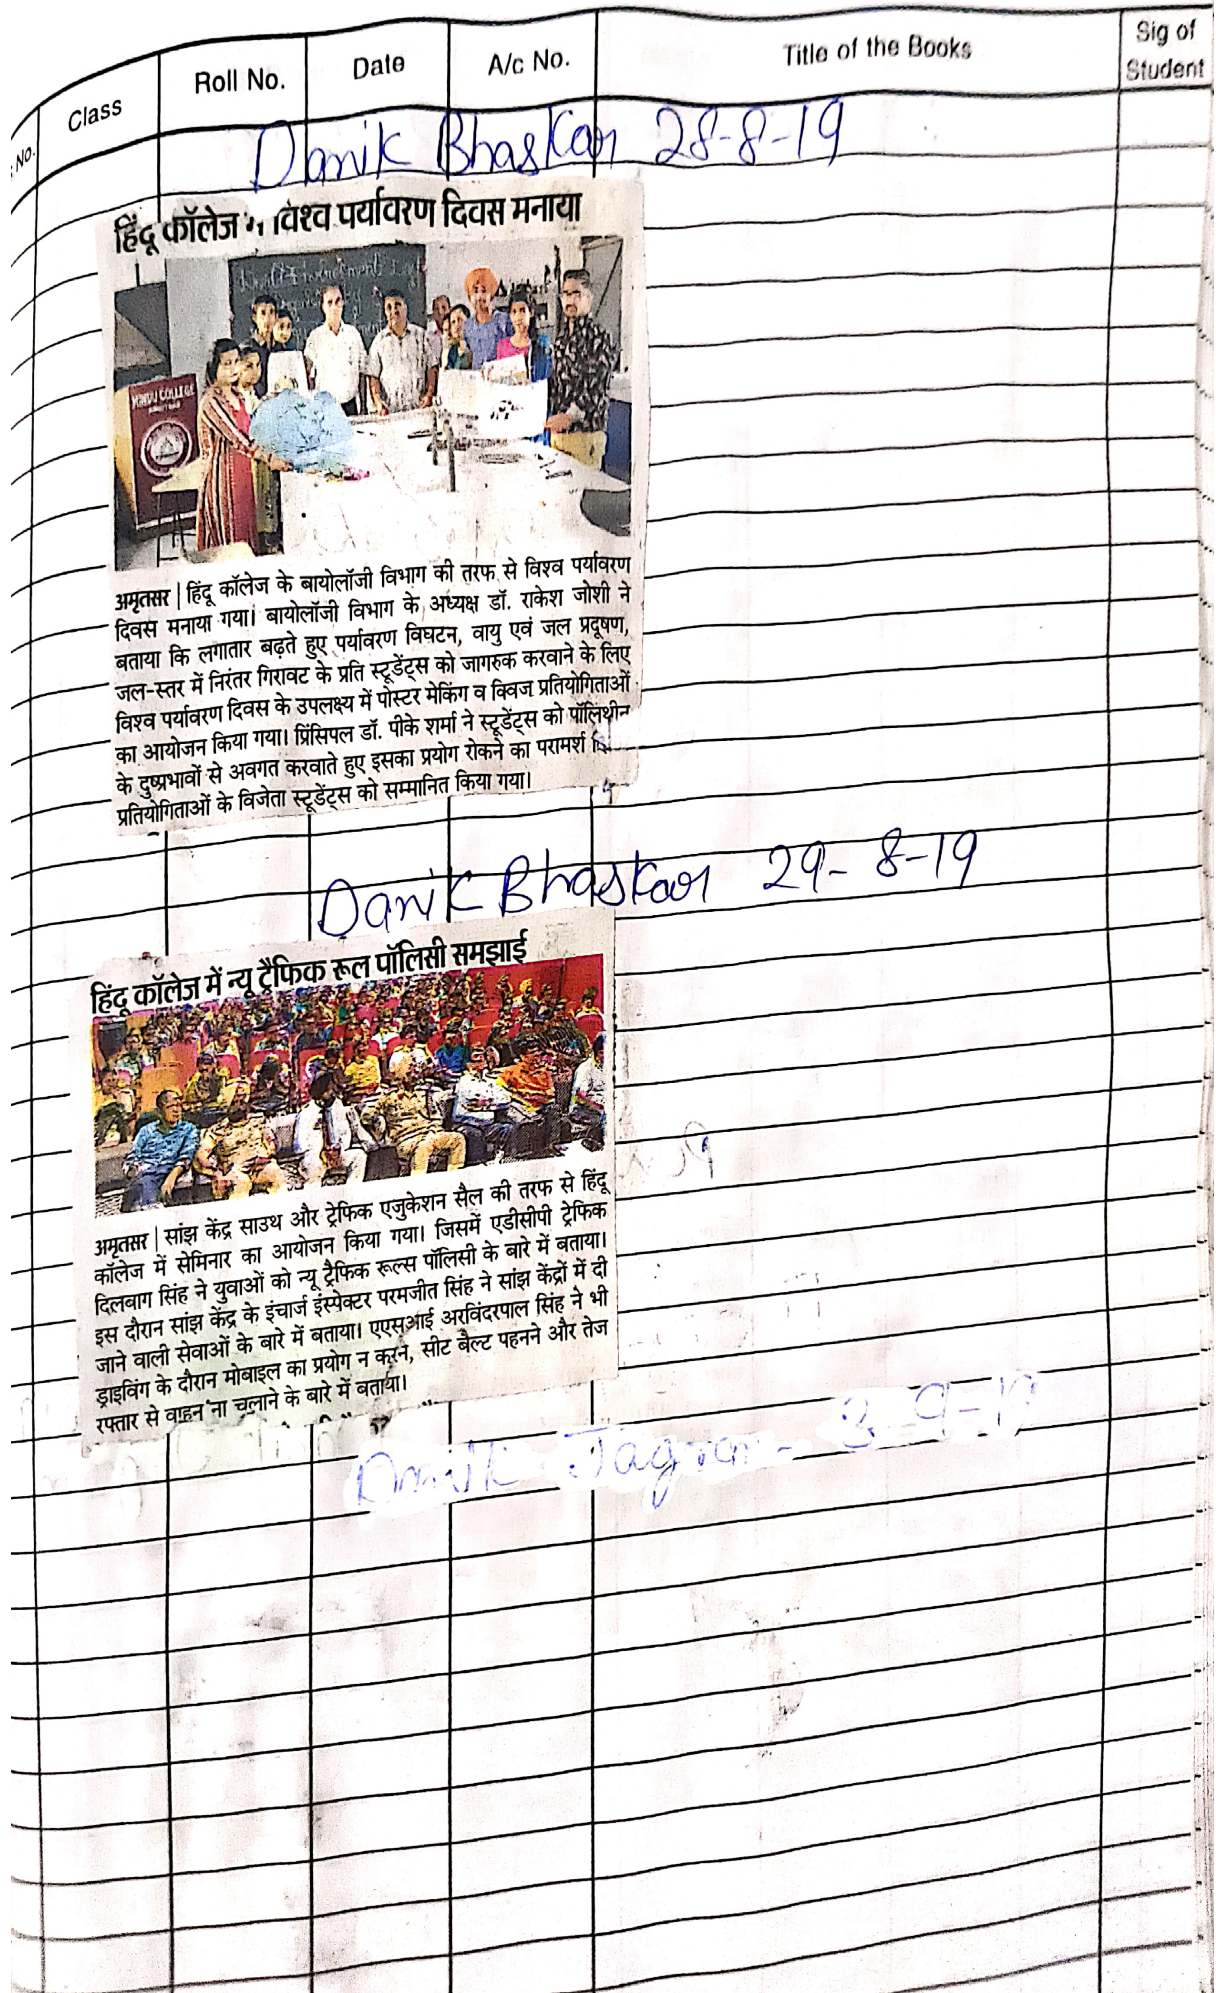 No.
Class
Roll No.
Date
A/c No.
Title of the Books
Sig of
Student
Danik Bhaskar 28-8-19
हिंदू कॉलेज में विश्व पर्यावरण दिवस मनाया
HINDU COLLEGE
अमृतसर | हिंदू कॉलेज के बायोलॉजी विभाग की तरफ से विश्व पर्यावरण
दिवस मनाया गया। बायोलॉजी विभाग के अध्यक्ष डॉ. राकेश जोशी ने
बताया कि लगातार बढ़ते हुए पर्यावरण विघटन, वायु एवं जल प्रदूषण,
जल-स्तर में निरंतर गिरावट के प्रति स्टूडेंट्स को जागरुक करवाने के लिए
विश्व पर्यावरण दिवस के उपलक्ष्य में पोस्टर मेकिंग व क्विज प्रतियोगिताओं
का आयोजन किया गया। प्रिंसिपल डॉ. पीके शर्मा ने स्टूडेंट्स को पॉलिथीन
के दुष्प्रभावों से अवगत करवाते हुए इसका प्रयोग रोकने का परामर्श
प्रतियोगिताओं के विजेता स्टूडेंट्स को सम्मानित किया गया।
Danik Bhaskar 29-8-19
हिंदू कॉलेज में न्यू ट्रैफिक रूल पॉलिसी समझाई
अमृतसर | सांझ केंद्र साउथ और ट्रेफिक एजुकेशन सैल की तरफ से हिंदू
कॉलेज में सेमिनार का आयोजन किया गया। जिसमें एडीसीपी ट्रेफिक
दिलबाग सिंह ने युवाओं को न्यू ट्रैफिक रूल्स पॉलिसी के बारे में बताया।
इस दौरान सांझ केंद्र के इंचार्ज इंस्पेक्टर परमजीत सिंह ने सांझ केंद्रों में दी
जाने वाली सेवाओं के बारे में बताया। एएसआई अरविंदरपाल सिंह ने भी
ड्राइविंग के दौरान मोबाइल का प्रयोग न करने, सीट बैल्ट पहनने और तेज
रफ्तार से वाहन ना चलाने के बारे में बताया।
Danik Jagran - 3-9-19